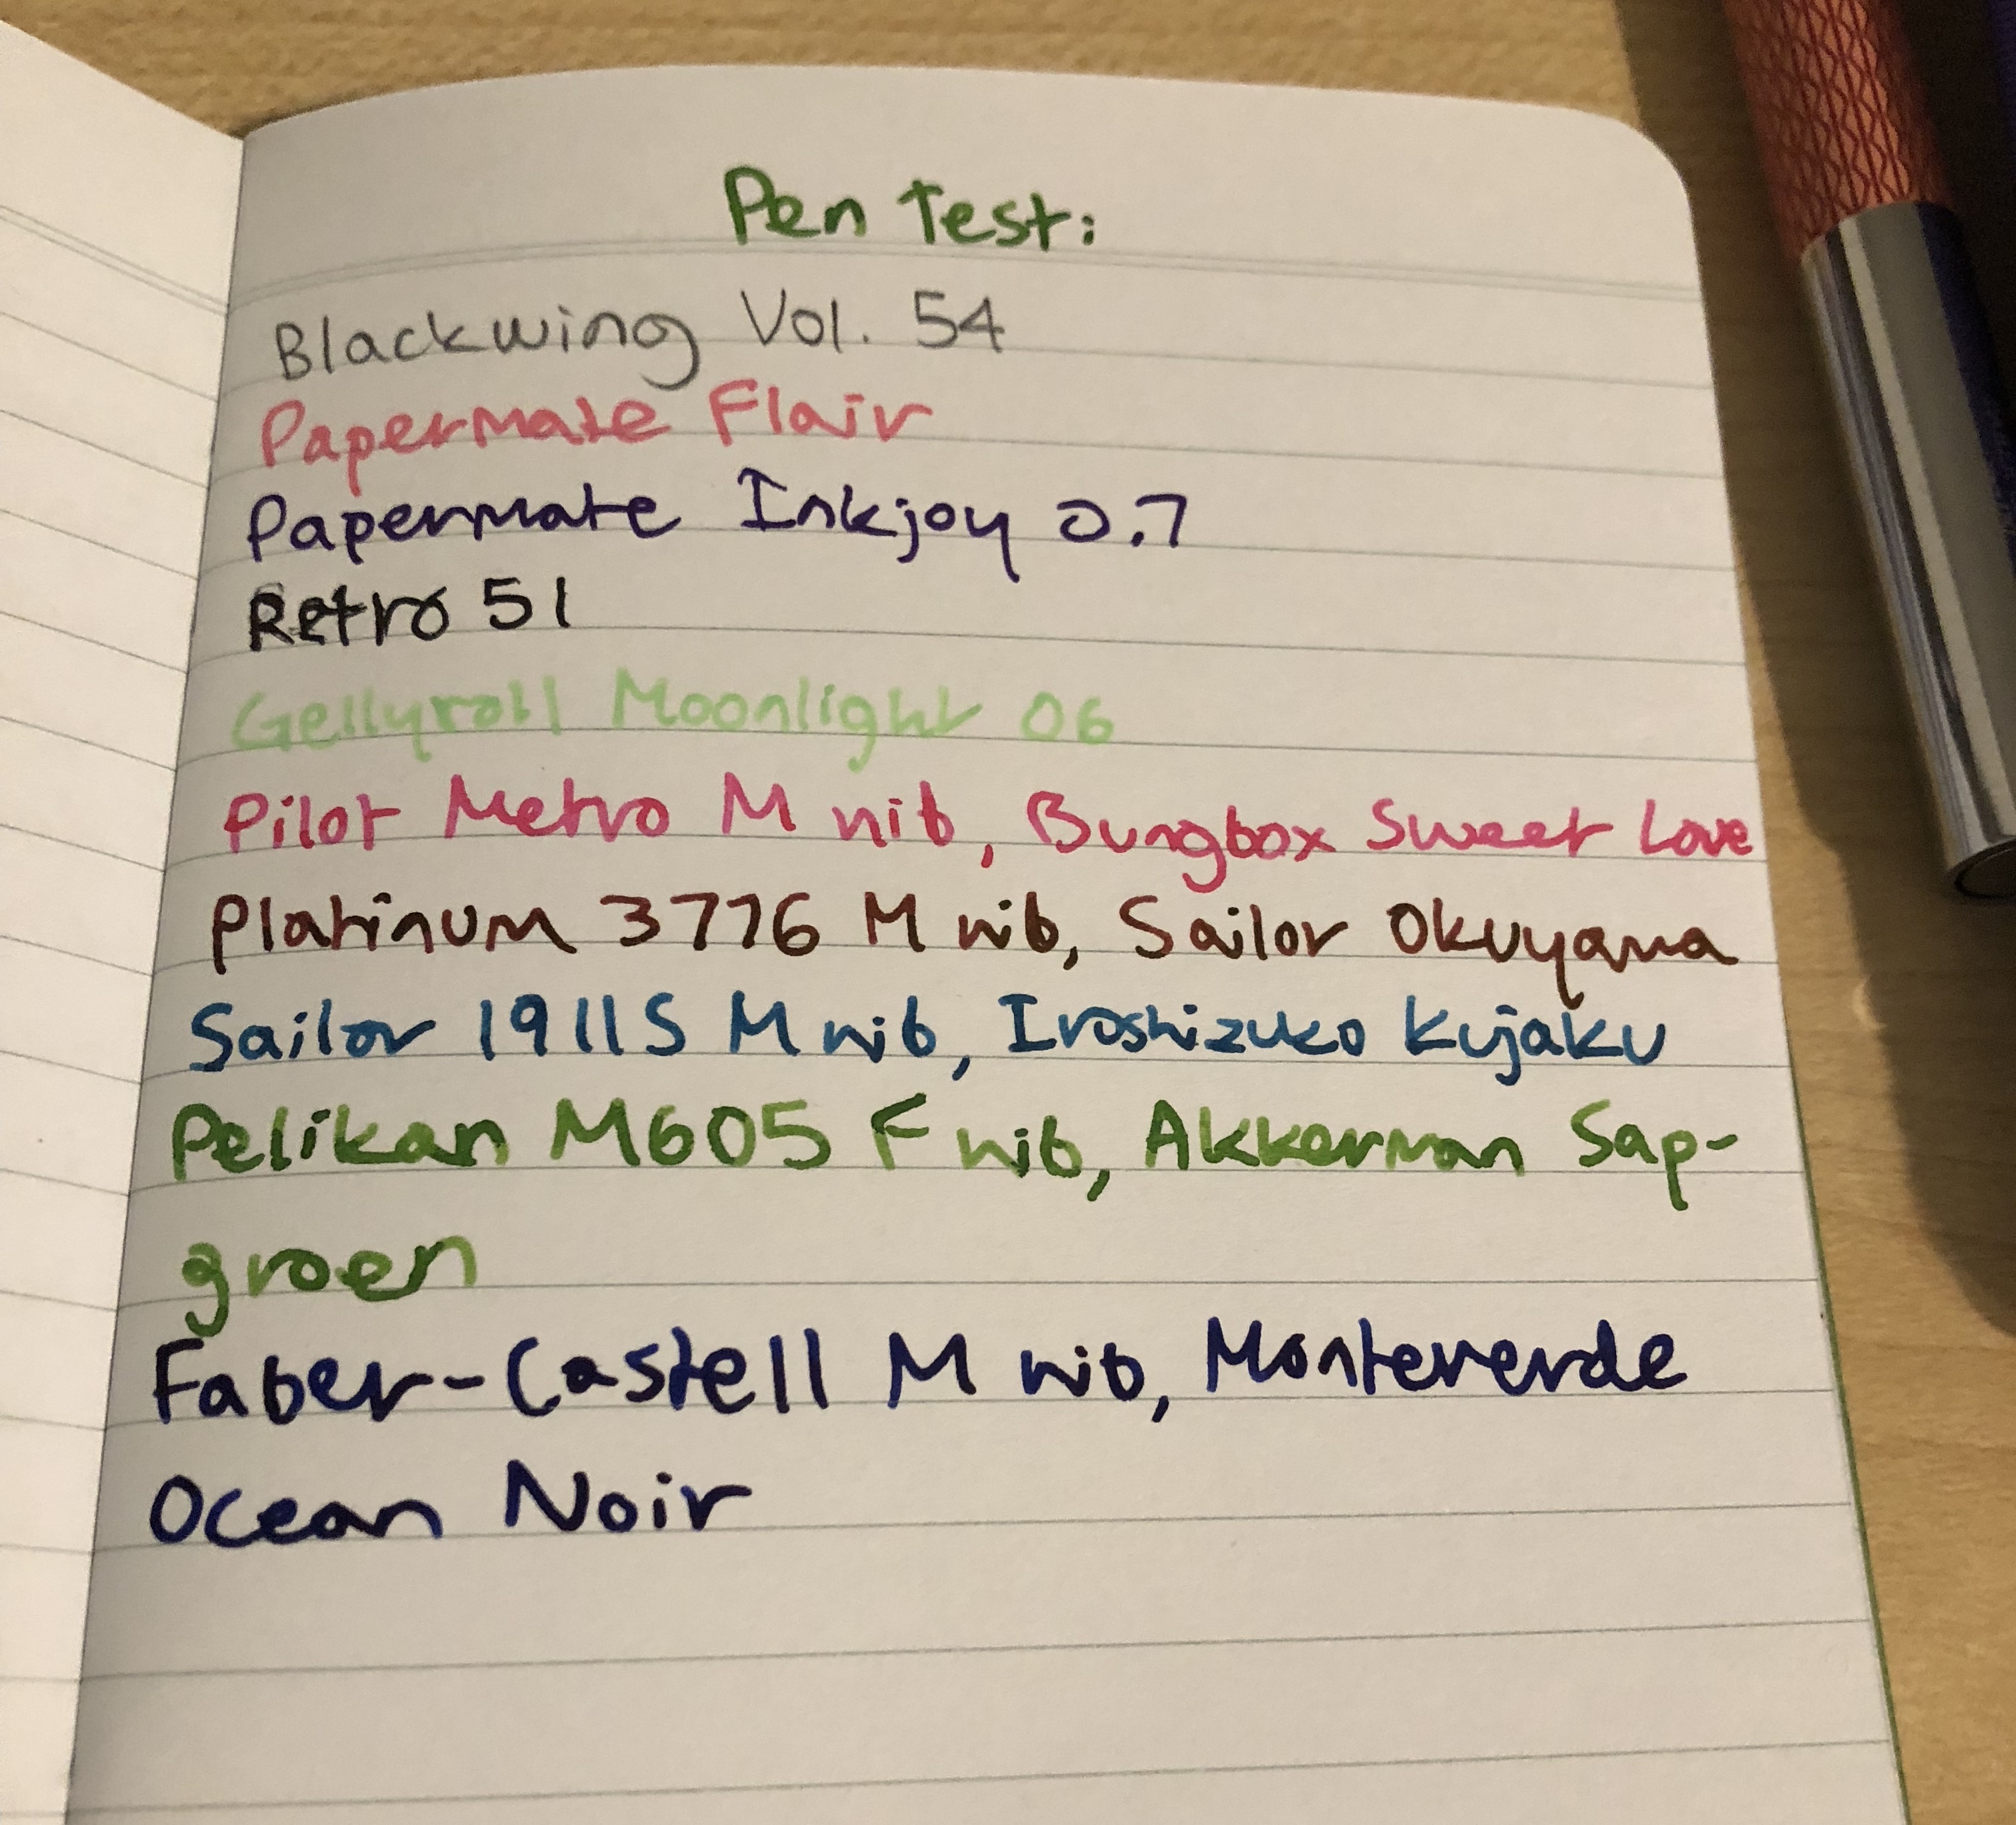 Pen Test:
Blackwing Vol. 54
Papermate Flair
Papermate Inkjoy 0.7
Retro 51
Gellyroll Moonlight 06
Pilot Metro M nib, Bungbox Sweet Love
Platinum 3776 M nib, Sailor Okuyama
Sailor 1911S M nib, Iroshizuko Kujaku
Pelikan M605 F nib, Akkerman Sap-
groen
Faber-Castell M nib, Monteverde
Ocean Noir